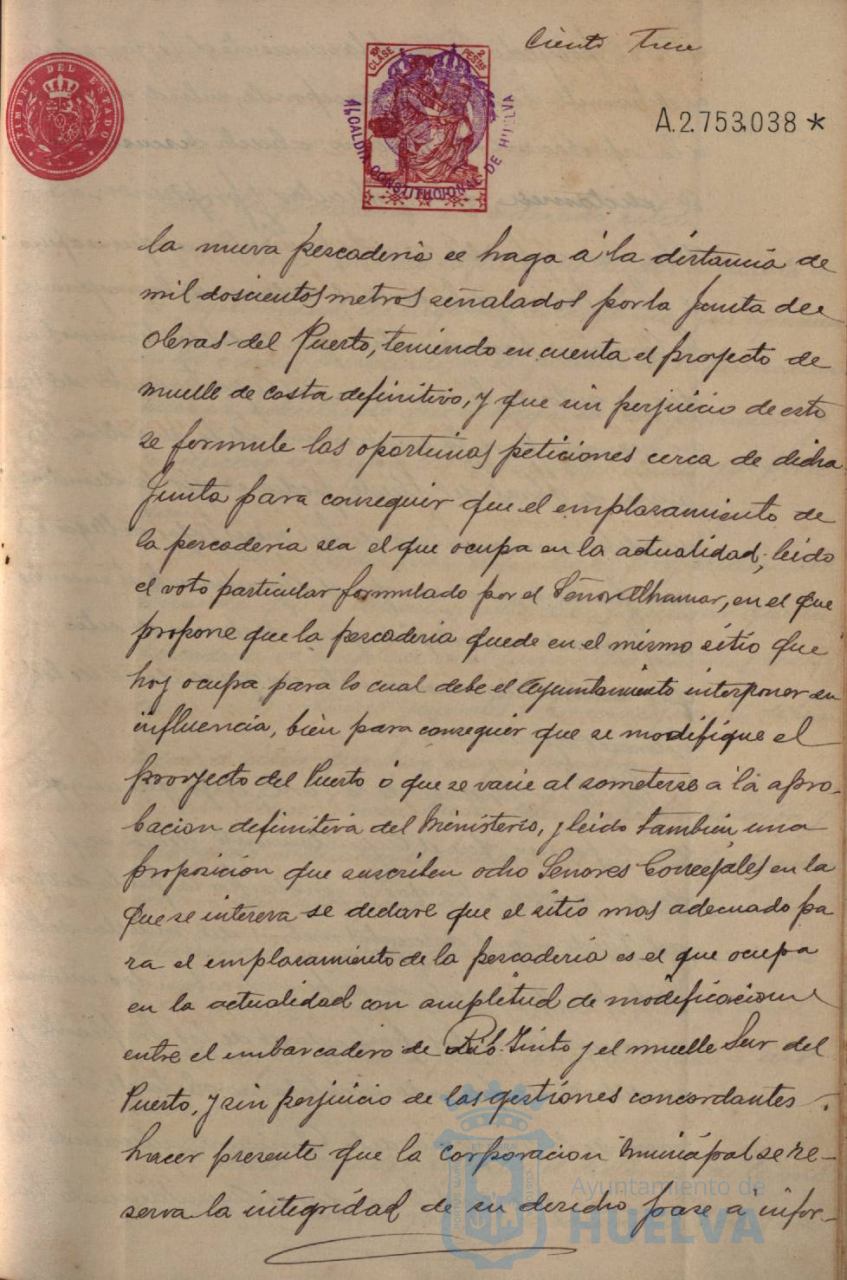 Ciento Trece
TIMBRE DEL ESTADO
10ª CLASE
2 PESTAS
ALCALDIA CONSTITUCIONAL DE HUELVA
A.2.753,038 *
la nueva pescaderia se haga á la distancia de
mil doscientos metros señalados por la Junta de
Obras del Puerto, teniendo en cuenta el proyecto de
muelle de costa definitivo, y que sin perjuicio de esto
se formule las oportunas peticiones cerca de dicha
Junta para conseguir que el emplasamiento de
la pescaderia sea el que ocupa en la actualidad; leido
el voto particular formulado por el Señor Alhamar, en el que
propone que la pescaderia quede en el mismo sitio que
hoy ocupa para lo cual debe el Ayuntamiento interponer su
influencia, bien para conseguir que se modifique el
proyecto del Puerto ó que se varie al someterse a la apro-
bacion definitiva del Ministerio, y leido tambien una
proposicion que suscriben ocho Señores Concejales en la
que se interesa se declare que el sitio mas adecuado pa
ra el emplasamiento de la pescaderia es el que ocupa
en la actualidad con amplitud de modificacion
entre el embarcadero de Rio-Tinto y el muelle Sur del
Puerto, y sin perjuicio de las gestiones concordantes
hacer presente que la corporacion municipal se re-
serva la integridad de su derecho pase a infor-
Ayuntamiento de
HUELVA